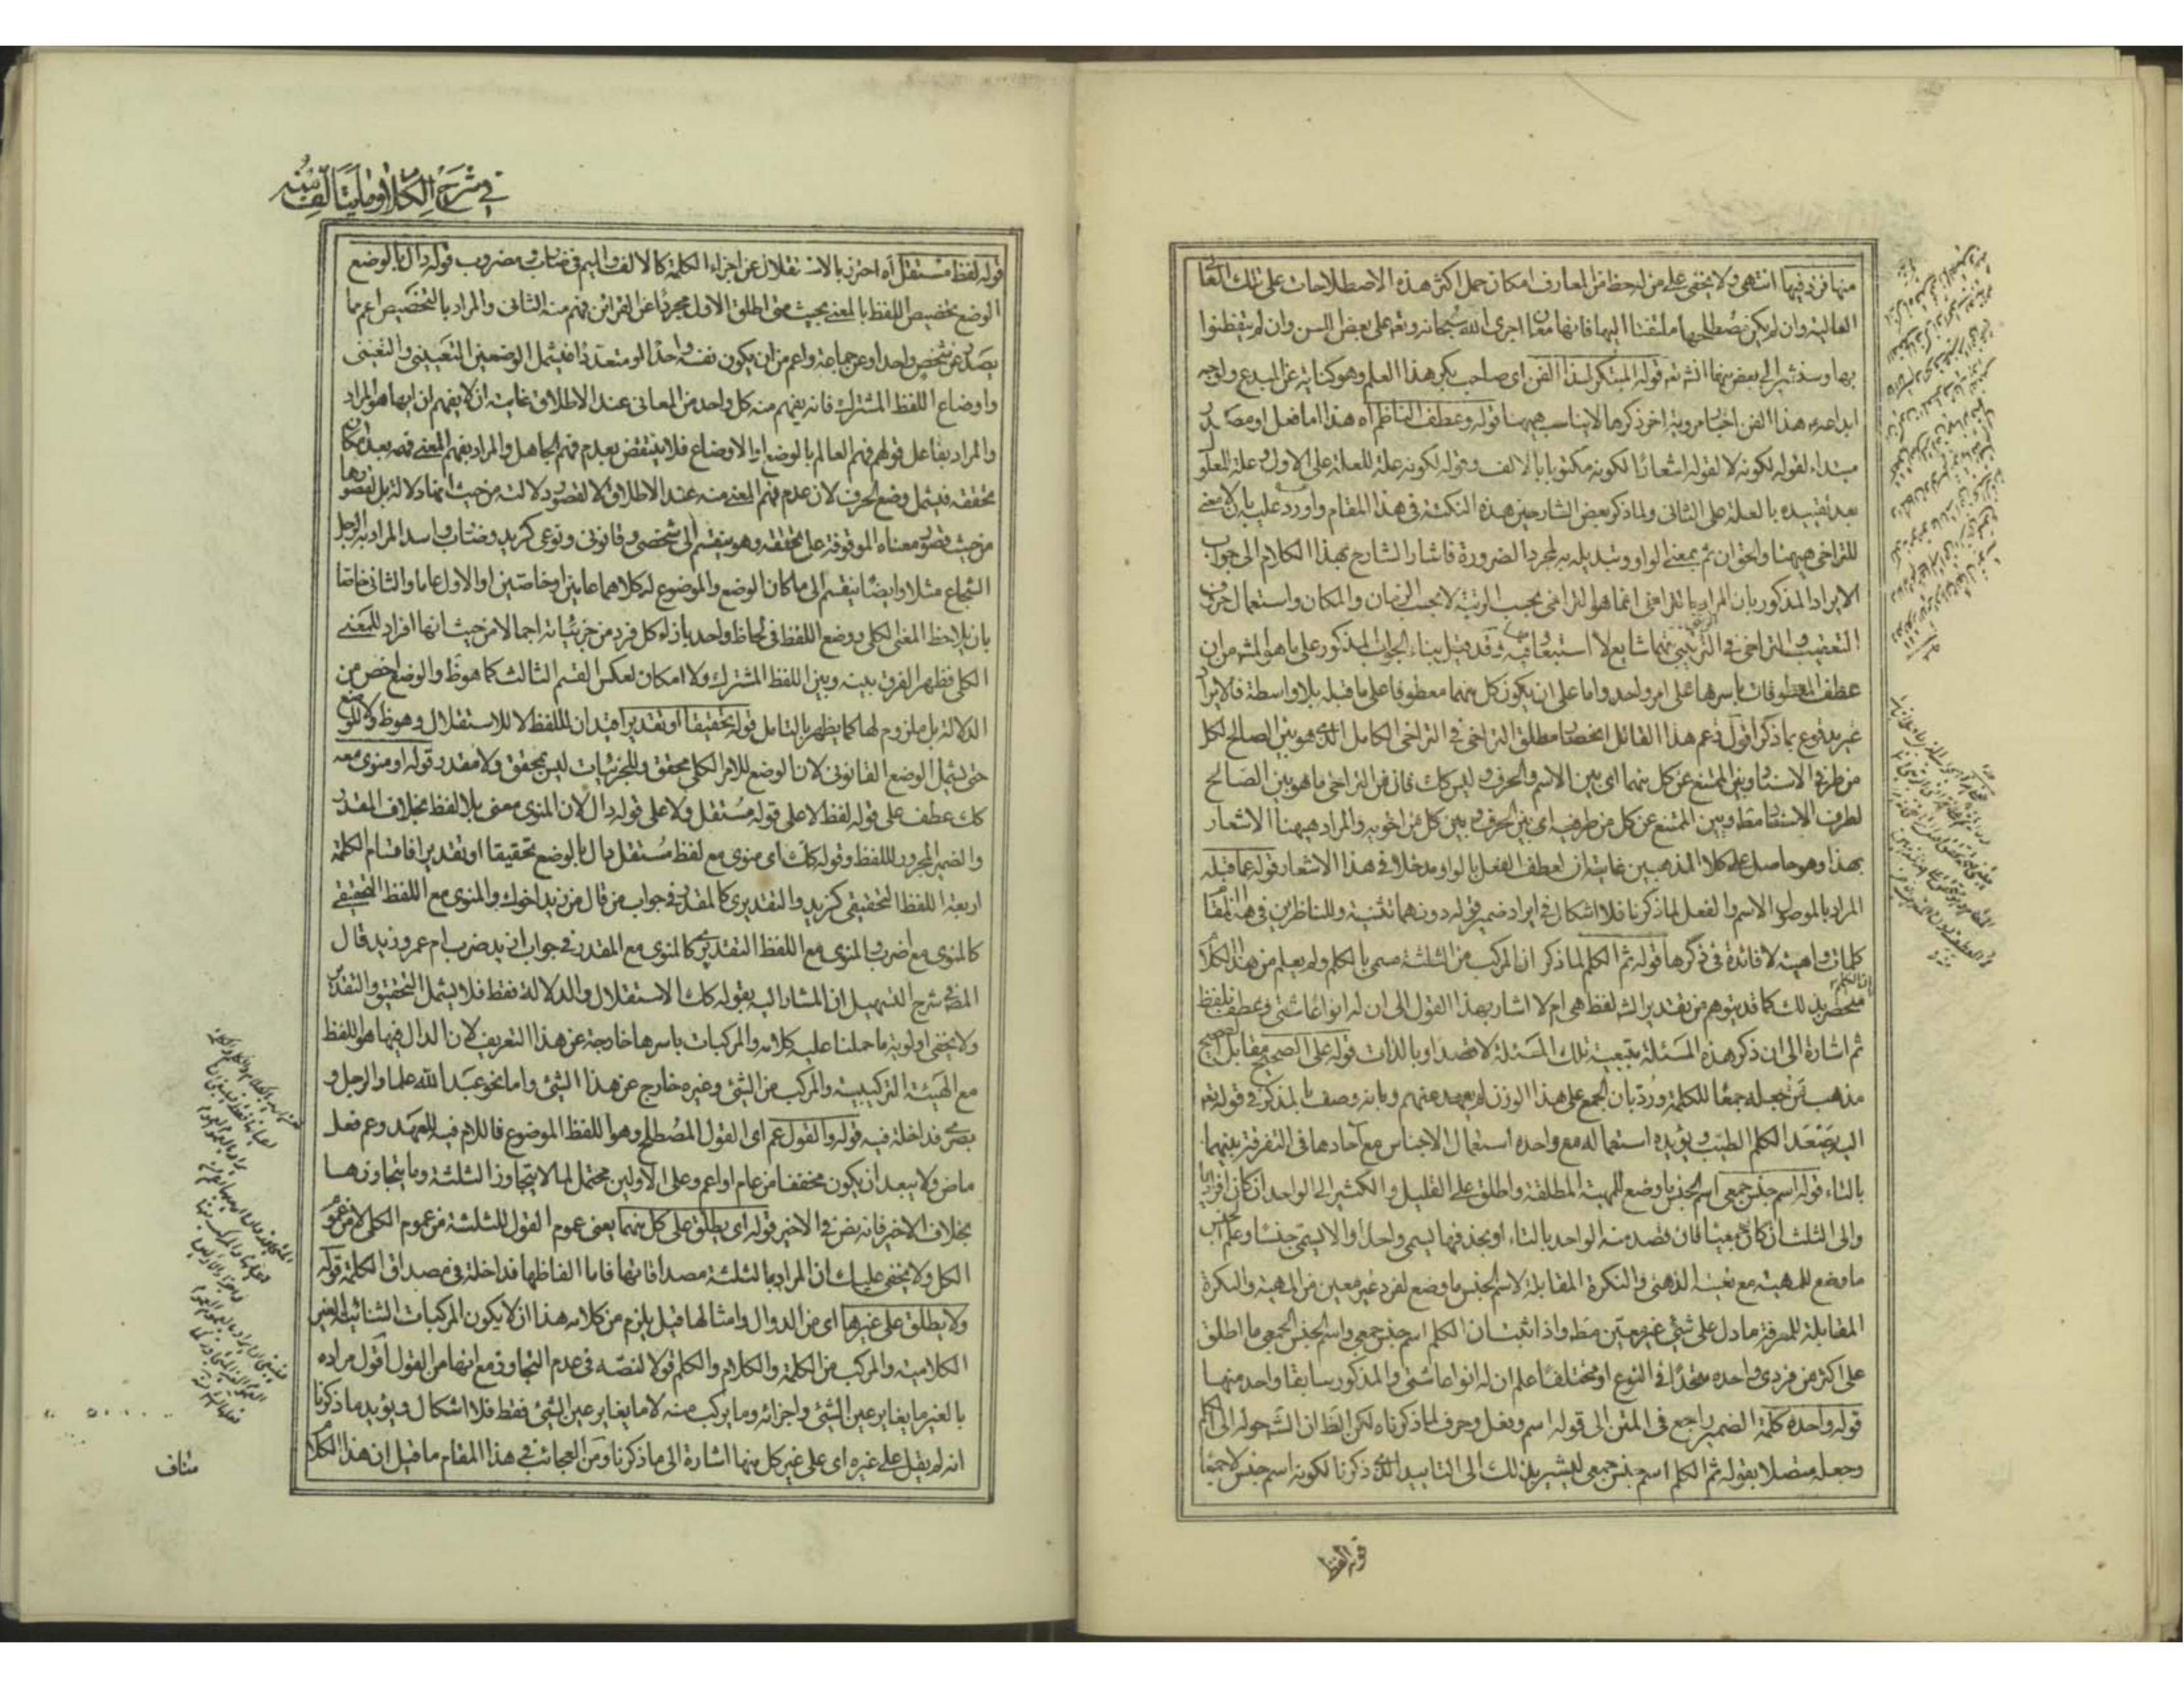 منها فزد فيها انتهى ولا يخفى على من له حظ من المعارف امكان حمل اكثر هذه الاصطلاحات على تلك المعانى
العالية وان لم يكن مصطلحها ملتفتا اليها فانها معان اجرى الله سبحانه وتعالى على بعض السن وان لم يتفطنوا
بها وسنشير الى بعض منها انشاء قوله المبتكر لهذا الفن اى صاحب بكر هذا العلم وهو كناية عن المبدع ولوجه
ابداعه هذا الفن اخبار مروية اخر ذكرها لا يناسب هيهنا قوله وعطف الناظم اه هذا اما فعل او مصدر
مبتداء لقوله لكونه لا لقوله اشعارا لكونه مكتوبا بالالف وقوله لكونه علة للعلة على الاول وعلة للمعلول
بعد تقييده بالعلة على الثانى ولما ذكر بعض الشارحين هذه النكتة فى هذا المقام واورد عليه بان لا معنى
للتراخى هيهنا والحق ان ثم بمعنى الواو وتبديله به لمجرد الضرورة فاشار الشارح بهذا الكلام الى جواب
الايراد المذكور بان المراد بالتراخى انما هو التراخى بحسب الرتبة لا بحسب الزمان والمكان واستعمال حروف
التعقيب والتراخى فى الترتيبى منهما شايع لا استبعاد فيه وقد قيل ببناء الجواب المذكور على ما هو المشهور من ان
عطف المعطوفات باسرها على امر واحد واما على ان يكون كل منهما معطوفا على ما قبله بلا واسطة فالايراد
غير مدفوع بما ذكر اقول زعم هذا القائل انحصار مطلق التراخى فى التراخى الكامل الذى هو بين الصالح لكل
من طرفى الاسناد وبين الممتنع عن كل منهما اى بين الاسم والحرف وليس كك فان من التراخى ما هو بين الصالح
لطرف الاسناد فقط وبين الممتنع عن كل من طرفيه اى بين الحرف وبين كل من اخويه والمراد هيهنا الاشعار
بهذا وهو حاصل على كلا المذهبين غايته ان لعطف الفعل بالواو مدخلا فى هذا الاشعار قوله عما قبله
المراد بالموصول الاسم والفعل لما ذكرنا فلا اشكال فى ايراد ضمير قوله دونهما تثنية وللناظرين فى هذا المقام
كلمات واهية لا فائدة فى ذكرها قوله ثم الكلم لما ذكر ان المركب من الثلثة مسمى بالكلم ولم يعلم من هذا الكلام
ان الكلم منحصر بذلك كما قد يتوهم من تقديم الشارح لفظ هى ام لا اشار بهذا القول الى ان له انواعا شتى وعطف بلفظ
ثم اشارة الى ان ذكر هذه المسئلة بتبعية تلك المسئلة لا قصدا وبالذات قوله على الصحيح مقابل الصحيح
مذهب من جعله جمعا للكلمة ورد بان الجمع على هذا الوزن لم يعهد منهم وبانه وصف بالمذكر فى قوله تعالى
اليه يصعد الكلم الطيب ويؤيده استعماله مع واحده استعمال الاجناس مع آحادها فى التفرقة بينهما
بالتاء قوله اسم جنس جمعى اسم الجنس ما وضع للمهية المطلقة واطلق على القليل والكثير الى الواحد ان كان افراديا
والى الثلث ان كان جمعيا فان قصد منه الواحد بالتاء او بحذفها يسمى واحدا والا يسمى جنسا وعلم الجنس
ما وضع للمهية مع تعينه الذهنى والنكرة المقابلة لاسم الجنس ما وضع لفرد غير معين من المهية والنكرة
المقابلة للمعرفة ما دل على شئ غير معين مطلقا واذا ثبت ان الكلم اسم جنس جمعى واسم الجنس الجمعى ما اطلق
على اكثر من فردى واحده متحدا فى النوع او مختلفا علم ان له انواعا شتى والمذكور سابقا واحد منها
قوله واحده كلمة الضمير راجع فى المتن الى قوله اسم وفعل وحرف لما ذكرناه لكن الظ ان الشارح حوله الى الكلم
وجعله متصلا بقوله ثم الكلم اسم جنس جمعى ليشير بذلك الى التاييد الذى ذكرنا لكونه اسم جنس لا جمعا
قوله لفظ
فى شرح الكلام وما يتألف منه
قوله لفظ مستقل اه احترز بالاستقلال عن اجزاء الكلمة كالالف والميم فى ضارب ومضروب قوله دال بالوضع
الوضع تخصيص اللفظ بالمعنى بحيث متى اطلق الاول مجردا عن القرائن فهم منه الثانى والمراد بالتخصيص اعم مما
يصدر عن شخص واحد او عن جماعة واعم من ان يكون نفسه واحدا او متعددا فيشمل الوضعين التعيينى والتعينى
واوضاع اللفظ المشترك فانه يفهم منه كل واحد من المعانى عند الاطلاق غايته ان لا يفهم ان ايها هو المراد
والمراد بفاعل قولهم فهم العالم بالوضع او الاوضاع فلا ينتقض بعدم فهم الجاهل والمراد بفهم المعنى فهمه بعد امكان
تحققه فيشمل وضع الحرف لان عدم فهم المعنى منه عند الاطلاق لا لقصور دلالته من حيث انها دلالة بل لقصورها
من حيث قصور معناه الموقوفة على تحققه وهو ينقسم الى شخصى وقانونى ونوعى كزيد وضارب واسد المراد به الرجل
الشجاع مثلا وايضا ينقسم الى ما كان الوضع والموضوع له كلاهما عامين او خاصين او الاول عاما والثانى خاصا
بان يلاحظ المعنى الكلى ووضع اللفظ فى لحاظ واحد بازاء كل فرد من جزئياته اجمالا من حيث انها افراد للمعنى
الكلى فظهر الفرق بينه وبين اللفظ المشترك ولا امكان لعكس القسم الثالث كما هو ظ والوضع اخص من
الدلالة بل ملزوم لها كما يظهر بالتامل قوله تحقيقا او تقديرا قيدان للفظ لا للاستقلال وهو ظ ولا للوضع
حتى يشمل الوضع القانونى لان الوضع للامر الكلى محقق وللجزئيات ليس بمحقق ولا مقدر قوله او منوى معه
كك عطف على قوله لفظ لا على قوله مستقل ولا على قوله دال لان المنوى معنى بلا لفظ بخلاف المقدر
والضمير المجرور للفظ وقوله كك اى منوى مع لفظ مستقل دال بالوضع تحقيقا او تقديرا فاقسام الكلمة
اربعة اللفظ التحقيقى كزيد والتقديرى كالمقدر فى جواب من قال من زيد اخوك والمنوى مع اللفظ التحقيقى
كالمنوى مع اضرب والمنوى مع اللفظ التقديرى كالمنوى مع المقدر فى جواب ازيد ضرب ام عمرو زيد قال
المص فى شرح التسهيل ان المشار اليه بقوله كك الاستقلال والدلالة فقط فلا يشمل التحقيق والتقدير
ولا يخفى اولوية ما حملنا عليه كلامه والمركبات باسرها خارجة عن هذا التعريف لان الدال فيها هو اللفظ
مع الهيئة التركيبية والمركب من الشئ وغيره خارج عن هذا الشئ واما نحو عبد الله علما والرجل و
بصرى فداخلة فيه قوله والقول عم اى القول المصطلح وهو اللفظ الموضوع فاللام فيه للعهد وعم فعل
ماض ولا يبعد ان يكون مخففا من عام او اعم وعلى الاولين محتمل لما لا يتجاوز الثلثة وما يتجاوزها
بخلاف الاخير فانه نص فى الاخير قوله اى يطلق على كل منهما يعنى عموم القول للثلثة من عموم الكلى لا من عموم
الكل ولا يخفى عليك ان المراد بالثلثة مصداقاتها فاما الفاظها فداخلة فى مصداق الكلمة قوله
ولا يطلق على غيرها اى من الدوال وامثالها قيل يلزم من كلامه هذا ان لا يكون المركبات الثنائية الغير
الكلامية والمركب من الكلمة والكلام والكلم قولا لنصه فى عدم التجاوز مع انها من القول اقول مراده
بالغير ما يغاير عين الشئ واجزائه وما يركب منه لا ما يغاير عين الشئ فقط فلا اشكال ويؤيد ما ذكرنا
انه لم يقل على غيره اى على غير كل منها اشارة الى ما ذكرنا ومن العجائب فى هذا المقام ما قيل ان هذا الكلام
مناف